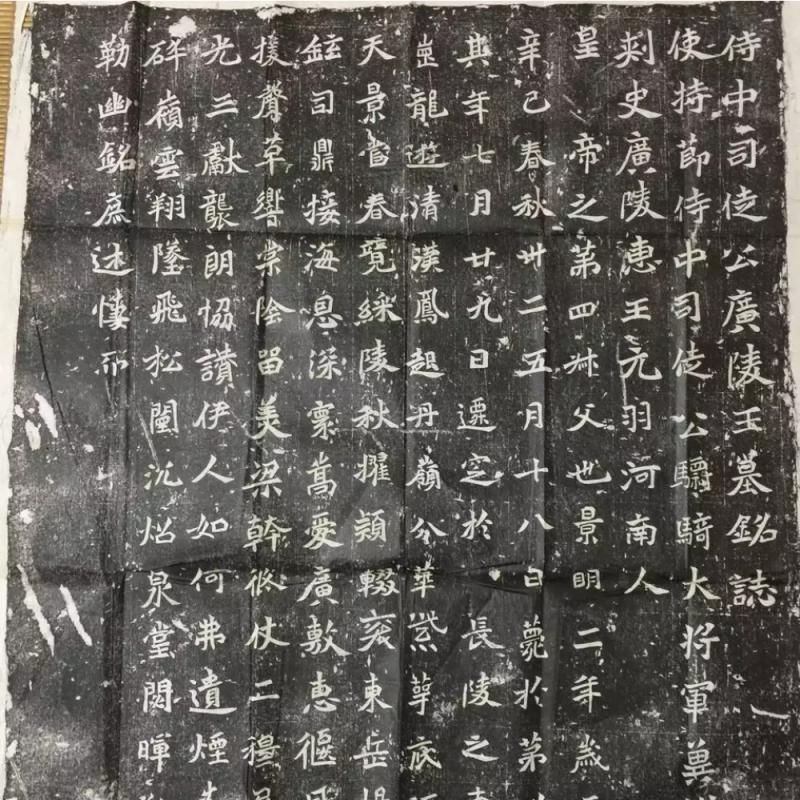 侍中司徒公廣陵王墓銘誌
使持節侍中司徒公驃騎大將軍冀
刾史廣陵惠王元羽河南人
皇帝之第四叔父也景明二年歲
辛巳春秋卅二五月十八日薨於第
其年七月廿九日遷窆於長陵之
崑龍遊清漢鳳起丹嶺分華
天景當春競綵陵秋擢穎輟袞東岳
鉉司鼎接海息深寡萬愛廣敷惠偃
援聲草響棠陰留美梁幹倏仗二
光三獻襲朗協讚伊人如何弗遺煙
碎嶺雲翔墜飛松闈沉炤泉堂閟暉
勒幽銘庶述悽而